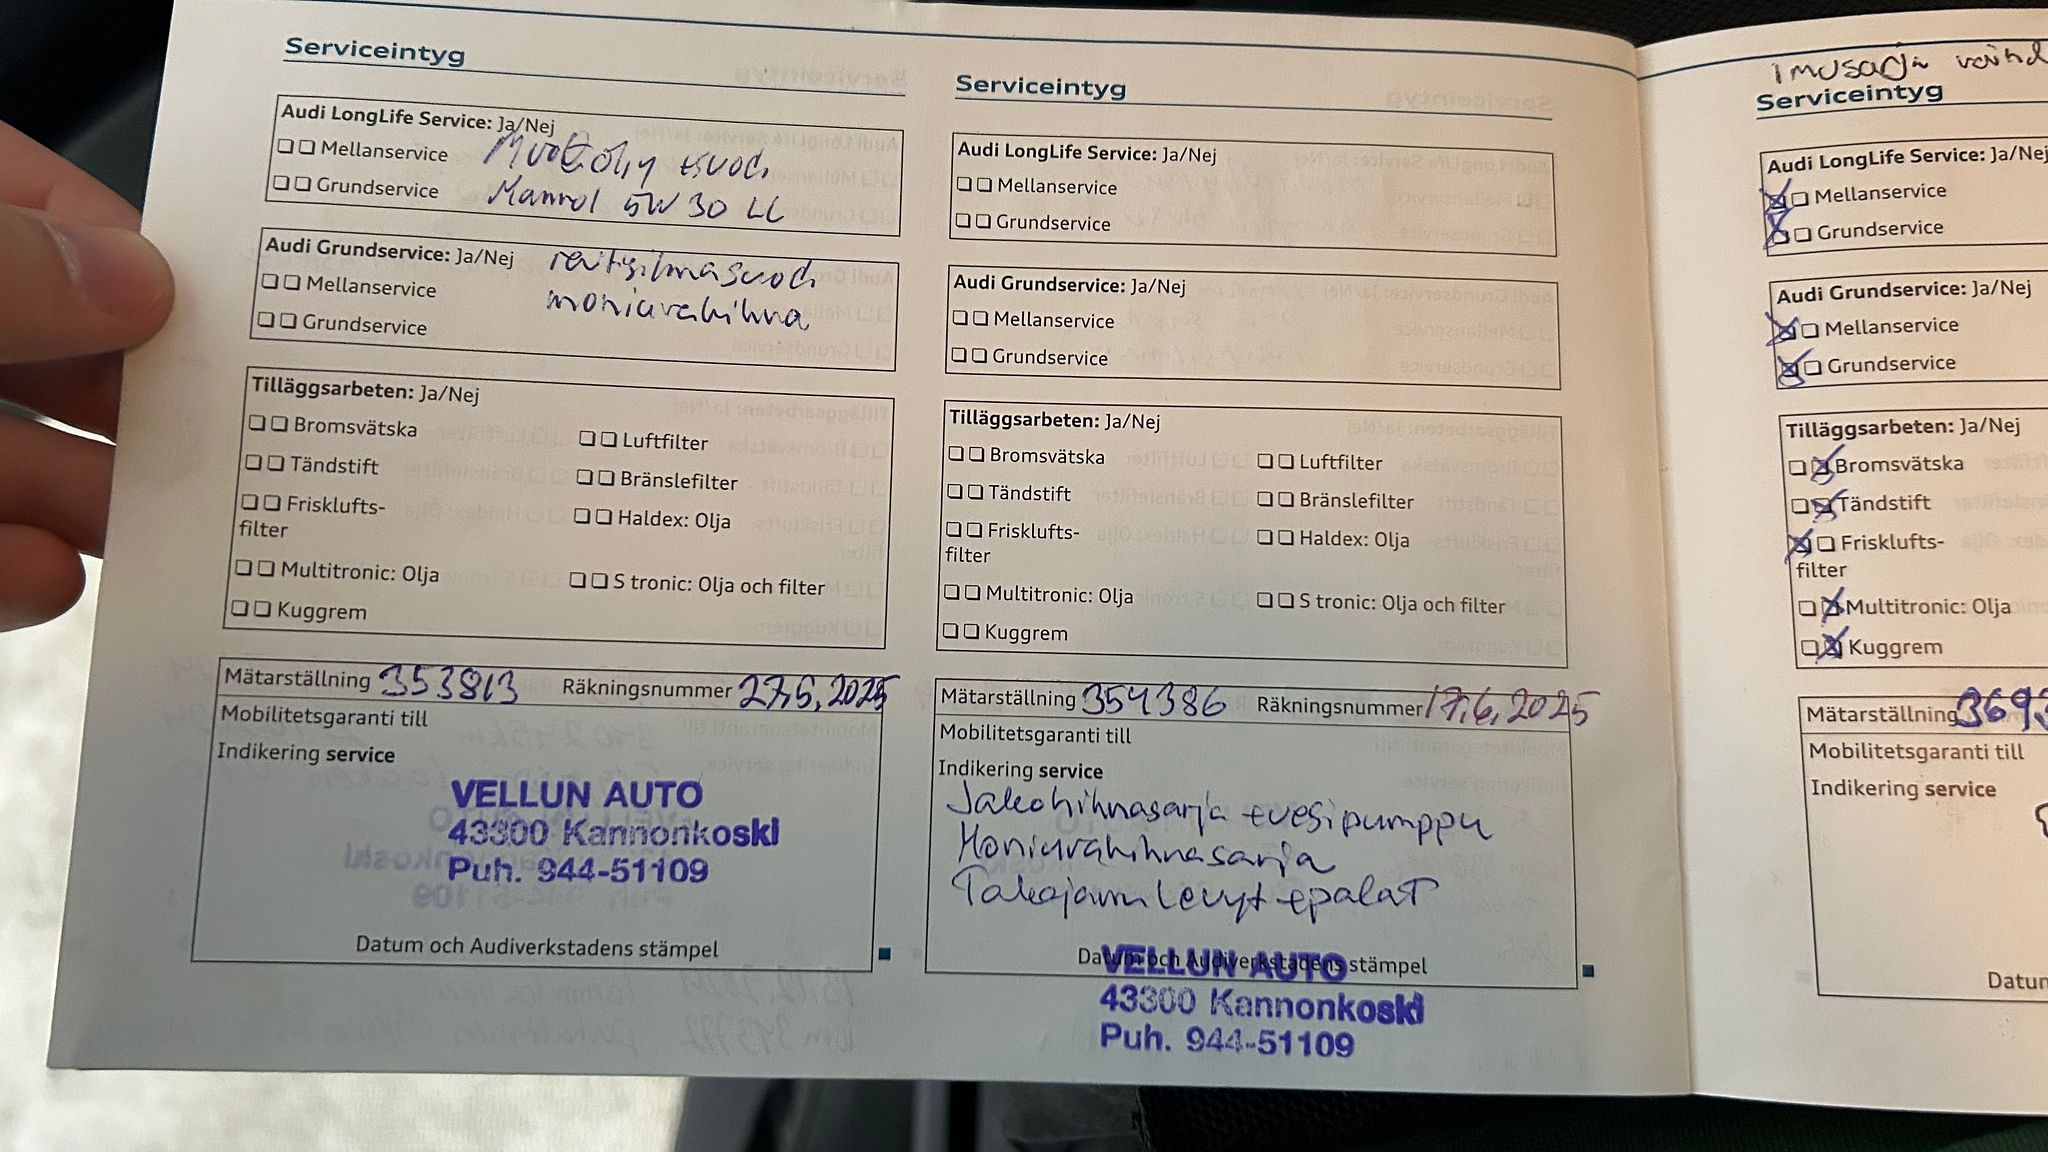 Serviceintyg
Audi LongLife Service: Ja/Nej
Mellanservice
Grundservice
Moott. öljy + suod.
Mannol 5W30 LL
Audi Grundservice: Ja/Nej
Mellanservice
Grundservice
raitisilmasuod.
moniurahihna
Tilläggsarbeten: Ja/Nej
Bromsvätska
Luftfilter
Tändstift
Bränslefilter
Frisklufts-
filter
Haldex: Olja
Multitronic: Olja
S tronic: Olja och filter
Kuggrem
Mätarställning 353813 Räkningsnummer 27.5.2025
Mobilitetsgaranti till
Indikering service
VELLUN AUTO
43300 Kannonkoski
Puh. 944-51109
Datum och Audiverkstadens stämpel
Serviceintyg
Audi LongLife Service: Ja/Nej
Mellanservice
Grundservice
Audi Grundservice: Ja/Nej
Mellanservice
Grundservice
Tilläggsarbeten: Ja/Nej
Bromsvätska
Luftfilter
Tändstift
Bränslefilter
Frisklufts-
filter
Haldex: Olja
Multitronic: Olja
S tronic: Olja och filter
Kuggrem
Mätarställning 354386 Räkningsnummer 17.6.2025
Mobilitetsgaranti till
Indikering service
Jakohihnasarja + vesipumppu
Moniurahihnasarja
Takajarrulevyt + palat
Datum och Audiverkstadens stämpel
VELLUN AUTO
43300 Kannonkoski
Puh. 944-51109
Imusarja
Serviceintyg
Audi LongLife Service: Ja/Nej
Mellanservice
Grundservice
Audi Grundservice: Ja/Nej
Mellanservice
Grundservice
Tilläggsarbeten: Ja/Nej
Bromsvätska
Tändstift
Frisklufts-
filter
Multitronic: Olja
Kuggrem
Mätarställning 369
Mobilitetsgaranti till
Indikering service
Datum